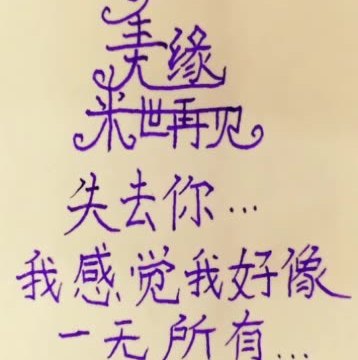 美缘
来世再见
失去你...
我感觉我好像
一无所有...